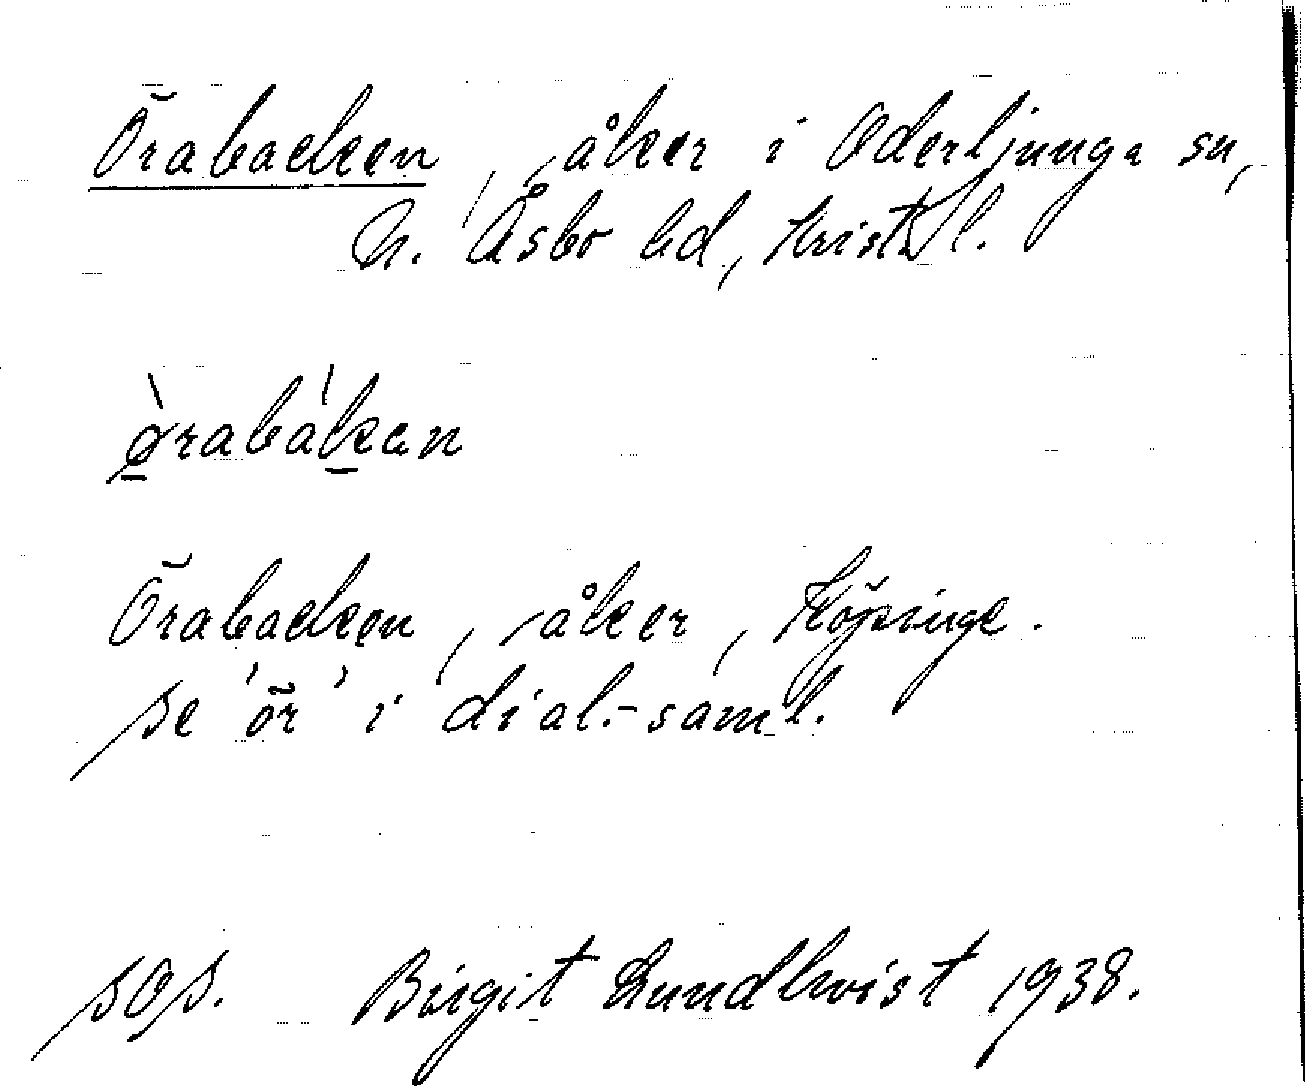 Örabacken, åker i Oderljunga sn,
N. Åsbo hd, Krist. l.
Örabacken, åker, Köpinge.
se 'ör' i dial.-saml.
SOS. Birgit Lundkvist 1938.